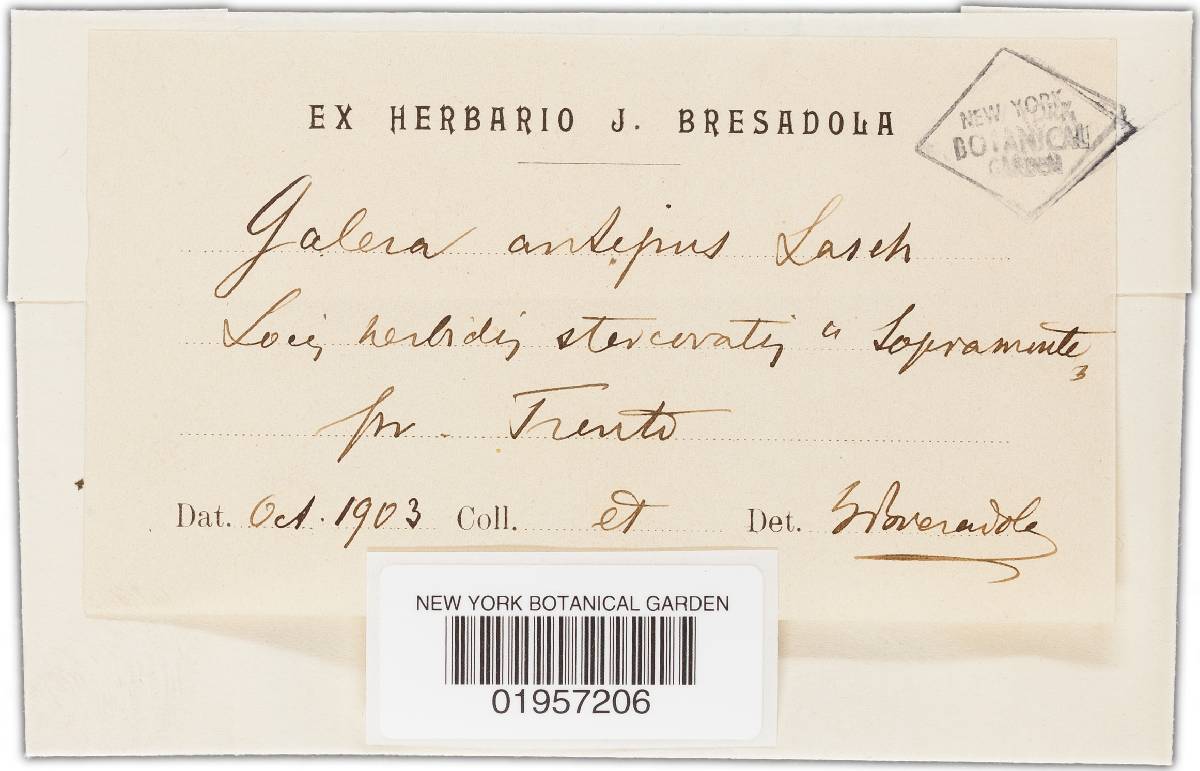 EX HERBARIO J. BRESADOLA
NEW YORK
BOTANICAL
GARDEN
Galera antipus Lasch
Locis herbidis stercoratis "Sopramonte"
pr. Trento
Dat. Oct. 1903 Coll. et Det. GBresadola
NEW YORK BOTANICAL GARDEN
01957206